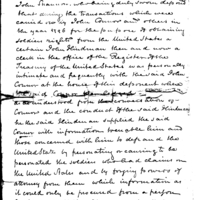 John Shannon, who being duly sworn deposeth
that during the transactions which were
carried on by John Connor and others in
the year 1818 for the purpose of obtaining
soldiers rights from the United States a
certain John Hindman then and now a
clerk in the office of the Register of the
Treasury of the United States was particularly
intimate and frequently with the said John
Connor at the house of this deponent where
Connor
he understood from the conversation of
Connor and the conduct of the said Hindman
he the said Hindman supplied the said
Connor with information to enable him and
those concerned with him to defraud the
United States by personating or causing to be
personated the soldiers who had claims on
the United States and by forging powers of
attorney from them which information as
it could only be procured from a person